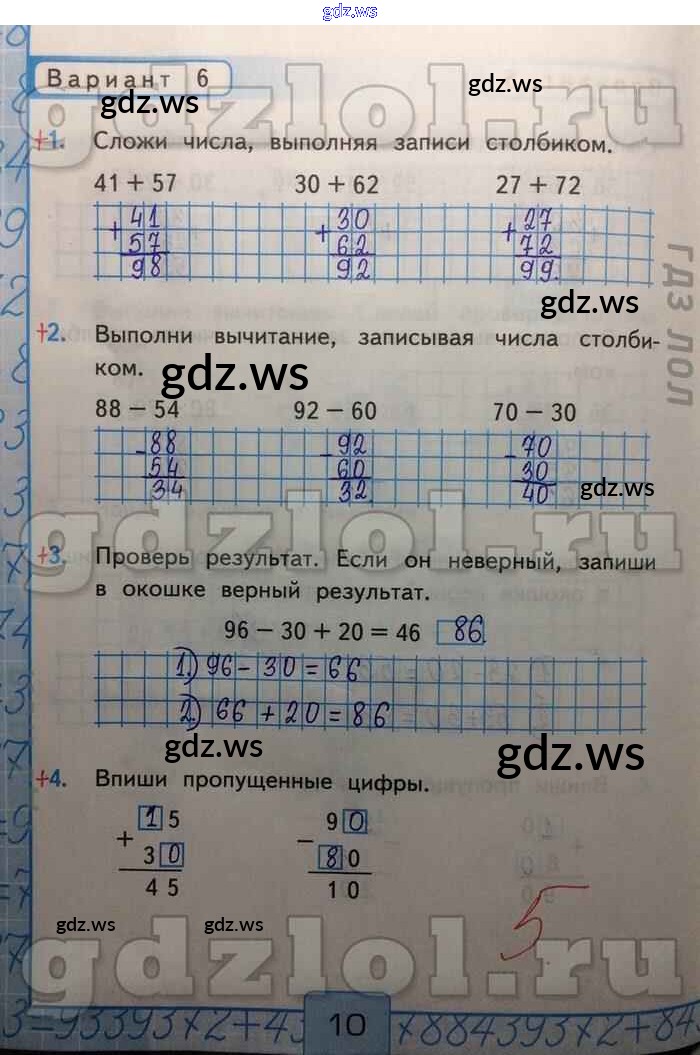 gdz.ws
Вариант 6
gdz.ws
gdzlol.ru
+1. Сложи числа, выполняя записи столбиком.
41 + 57 30 + 62 27 + 72
+ 41 + 30 + 27
57 62 72
98 92 99.
gdz.ws
ГДЗ ЛОЛ
+2. Выполни вычитание, записывая числа столби-
ком.
gdz.ws
88 − 54 92 − 60 70 − 30
- 88 - 92 - 70
54 60 30
34 32 40
gdz.ws
gdzlol.ru
+3. Проверь результат. Если он неверный, запиши
в окошке верный результат.
96 − 30 + 20 = 46 86
1) 96 - 30 = 66
2) 66 + 20 = 86
gdz.ws
gdz.ws
+4. Впиши пропущенные цифры.
+ 15 − 90
30 80
45 10
5
gdz.ws gdz.ws
gdzlol.ru
3=93393×2+43 10 ×884393×2+84